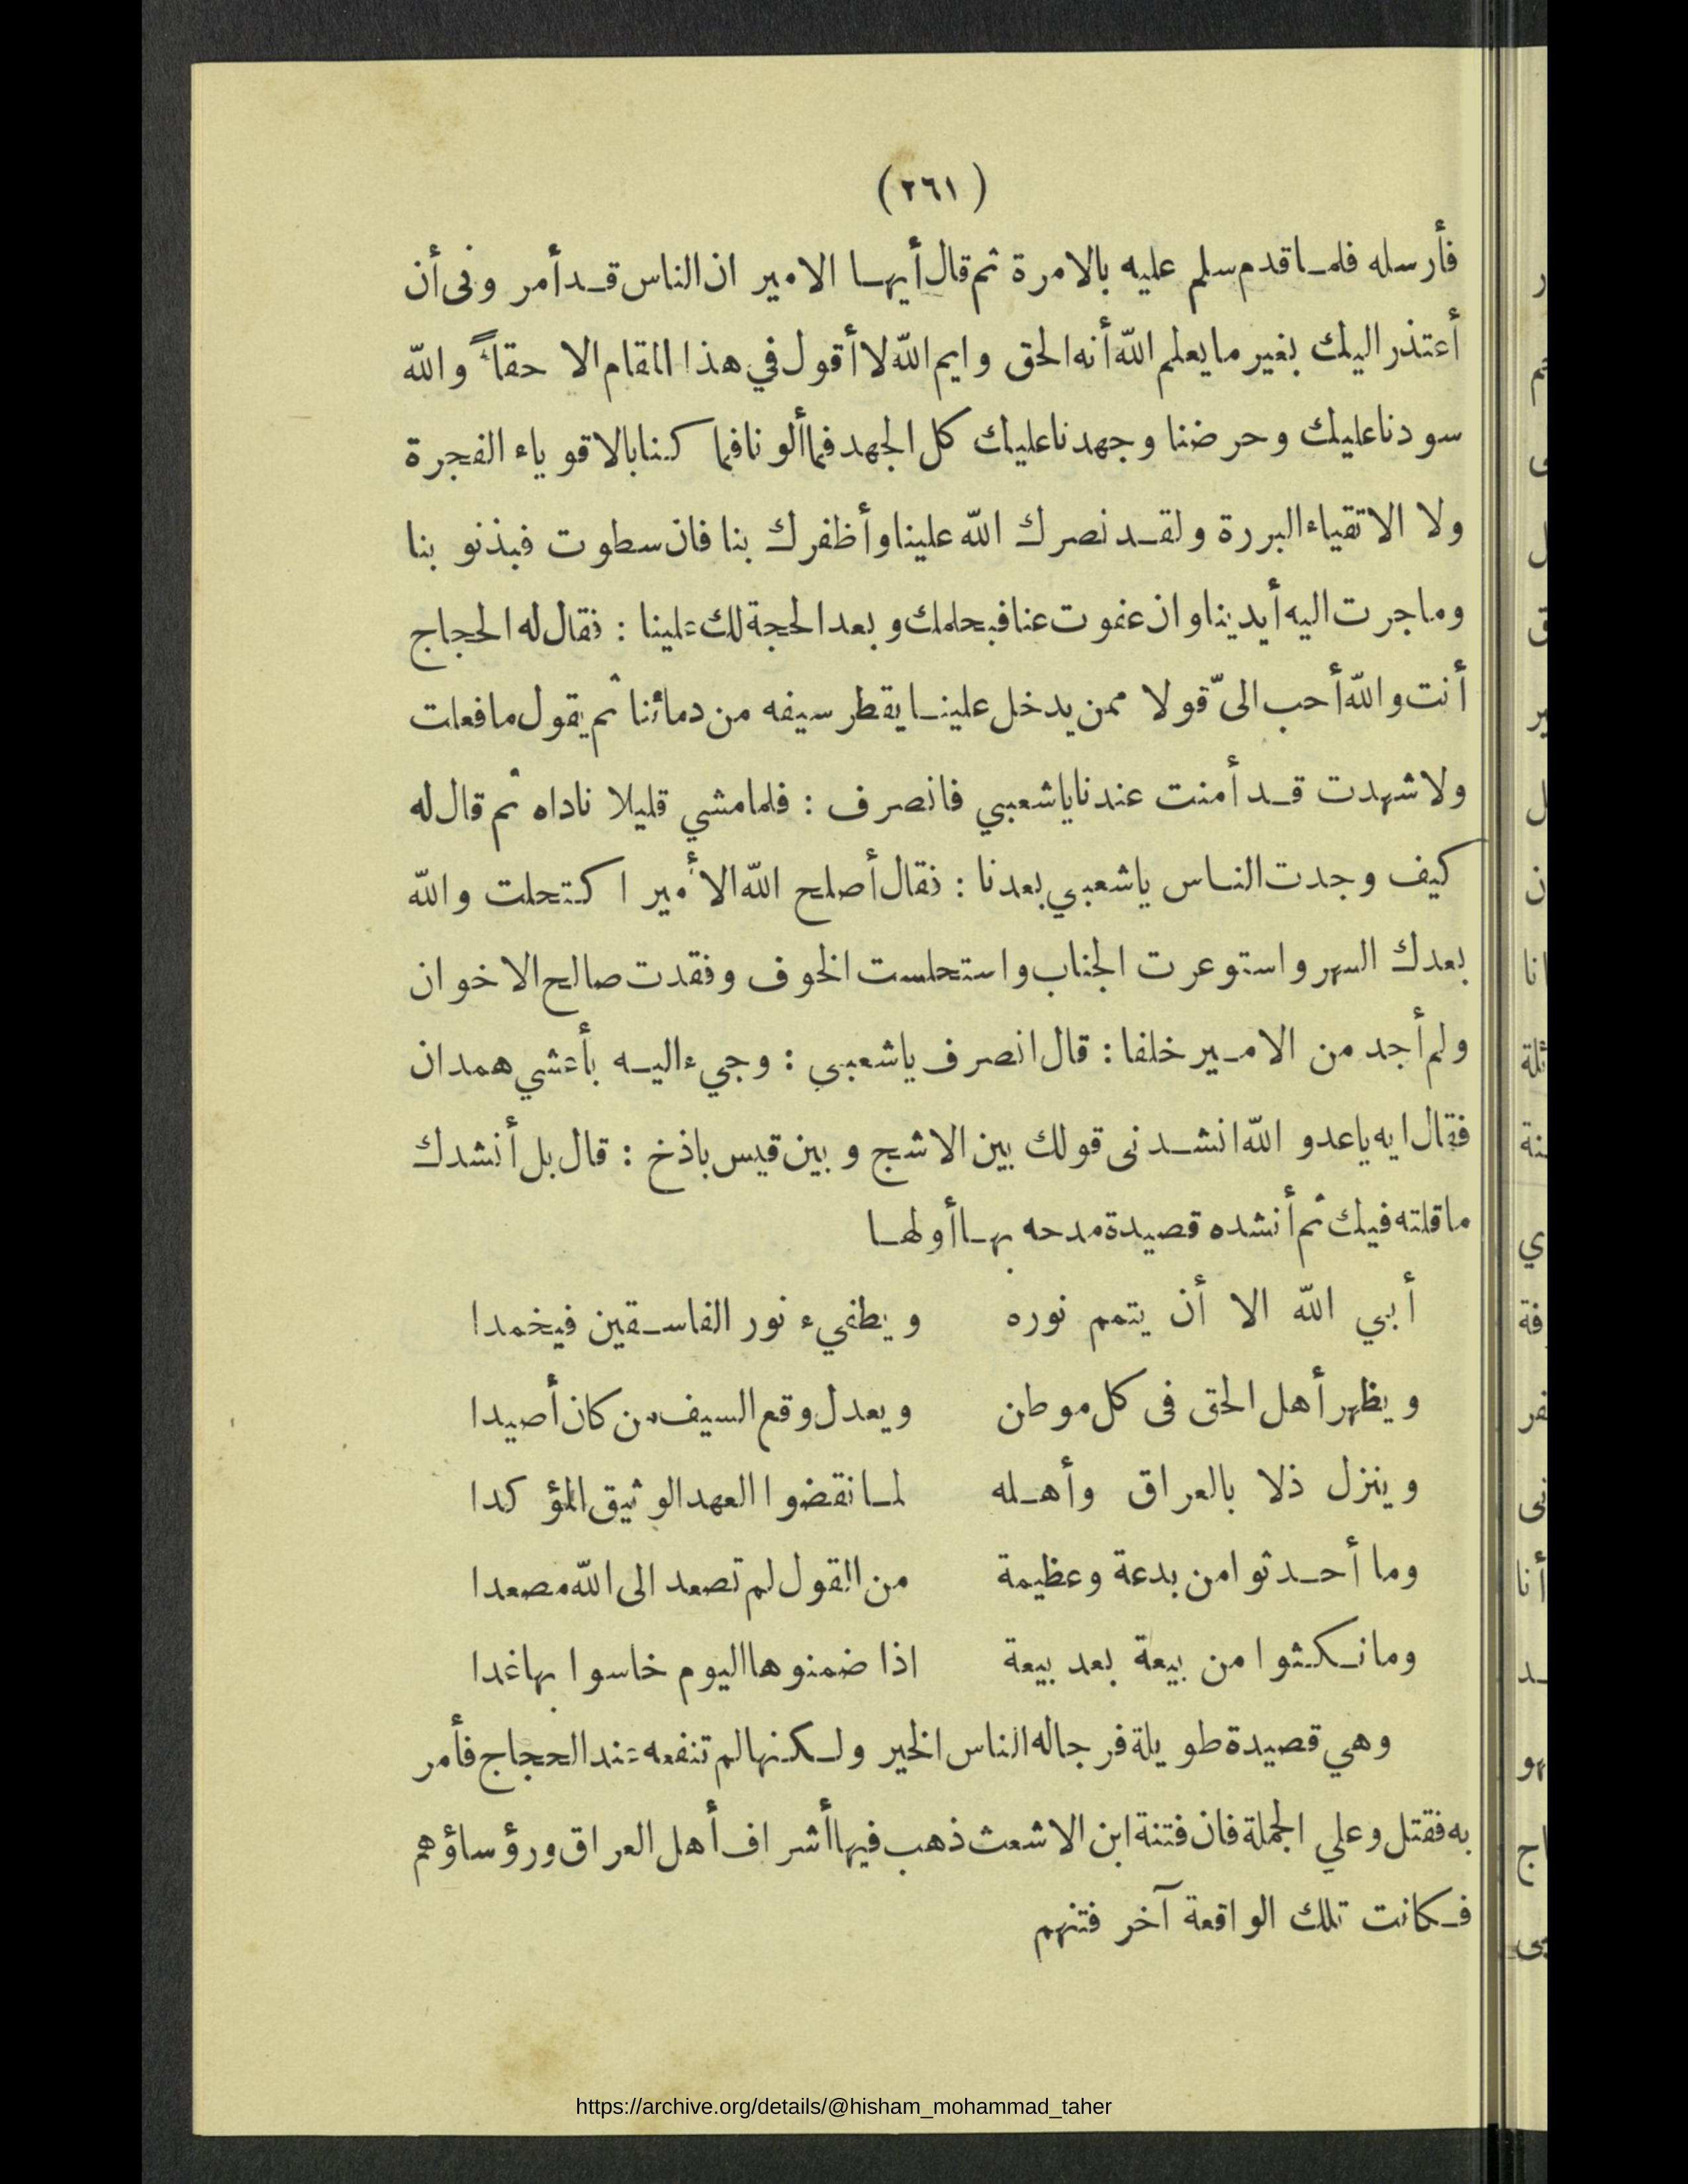 (٢٦١)
فأرسله فلما قدم سلم عليه بالامرة ثم قال أيها الامير ان الناس قد أمرونى أن
أعتذر اليك بغير ما يعلم الله أنه الحق وايم الله لا أقول في هذا المقام الا حقاً والله
سودنا عليك وحرضنا وجهدنا عليك كل الجهد فما ألونا فما كنا بالاقوياء الفجرة
ولا الاتقياء البررة ولقد نصرك الله علينا وأظفرك بنا فان سطوت فبذنو بنا
وما جرت اليه أيدينا وان عفوت عنا فبحلمك وبعد الحجة لك علينا : فقال له الحجاج
أنت والله أحب الىّ قولا ممن يدخل علينا يقطر سيفه من دمائنا ثم يقول ما فعلت
ولا شهدت قد أمنت عندنا يا شعبي فانصرف : فلما مشي قليلا ناداه ثم قال له
كيف وجدت الناس يا شعبي بعدنا : فقال أصلح الله الأمير اكتحلت والله
بعدك السهر واستوعرت الجناب واستحلست الخوف وفقدت صالح الاخوان
ولم أجد من الامير خلفا : قال انصرف يا شعبي : وجيء اليه بأعشي همدان
فقال ايه يا عدو الله انشدنى قولك بين الاشج وبين قيس باذخ : قال بل أنشدك
ما قلته فيك ثم أنشده قصيدة مدحه بها أولها
أبي الله الا أن يتمم نوره ويطفيء نور الفاسقين فيخمدا
ويظهر أهل الحق فى كل موطن ويعدل وقع السيف من كان أصيدا
وينزل ذلا بالعراق وأهله لما نقضوا العهد الوثيق المؤكدا
وما أحدثوا من بدعة وعظيمة من القول لم تصعد الى الله مصعدا
وما نكثوا من بيعة بعد بيعة اذا ضمنوها اليوم خاسوا بها غدا
وهي قصيدة طويلة فرجا له الناس الخير ولكنها لم تنفعه عند الحجاج فأمر
به فقتل وعلي الجملة فان فتنة ابن الاشعث ذهب فيها أشراف أهل العراق ورؤساؤهم
فكانت تلك الواقعة آخر فتنهم
https://archive.org/details/@hisham_mohammad_taher